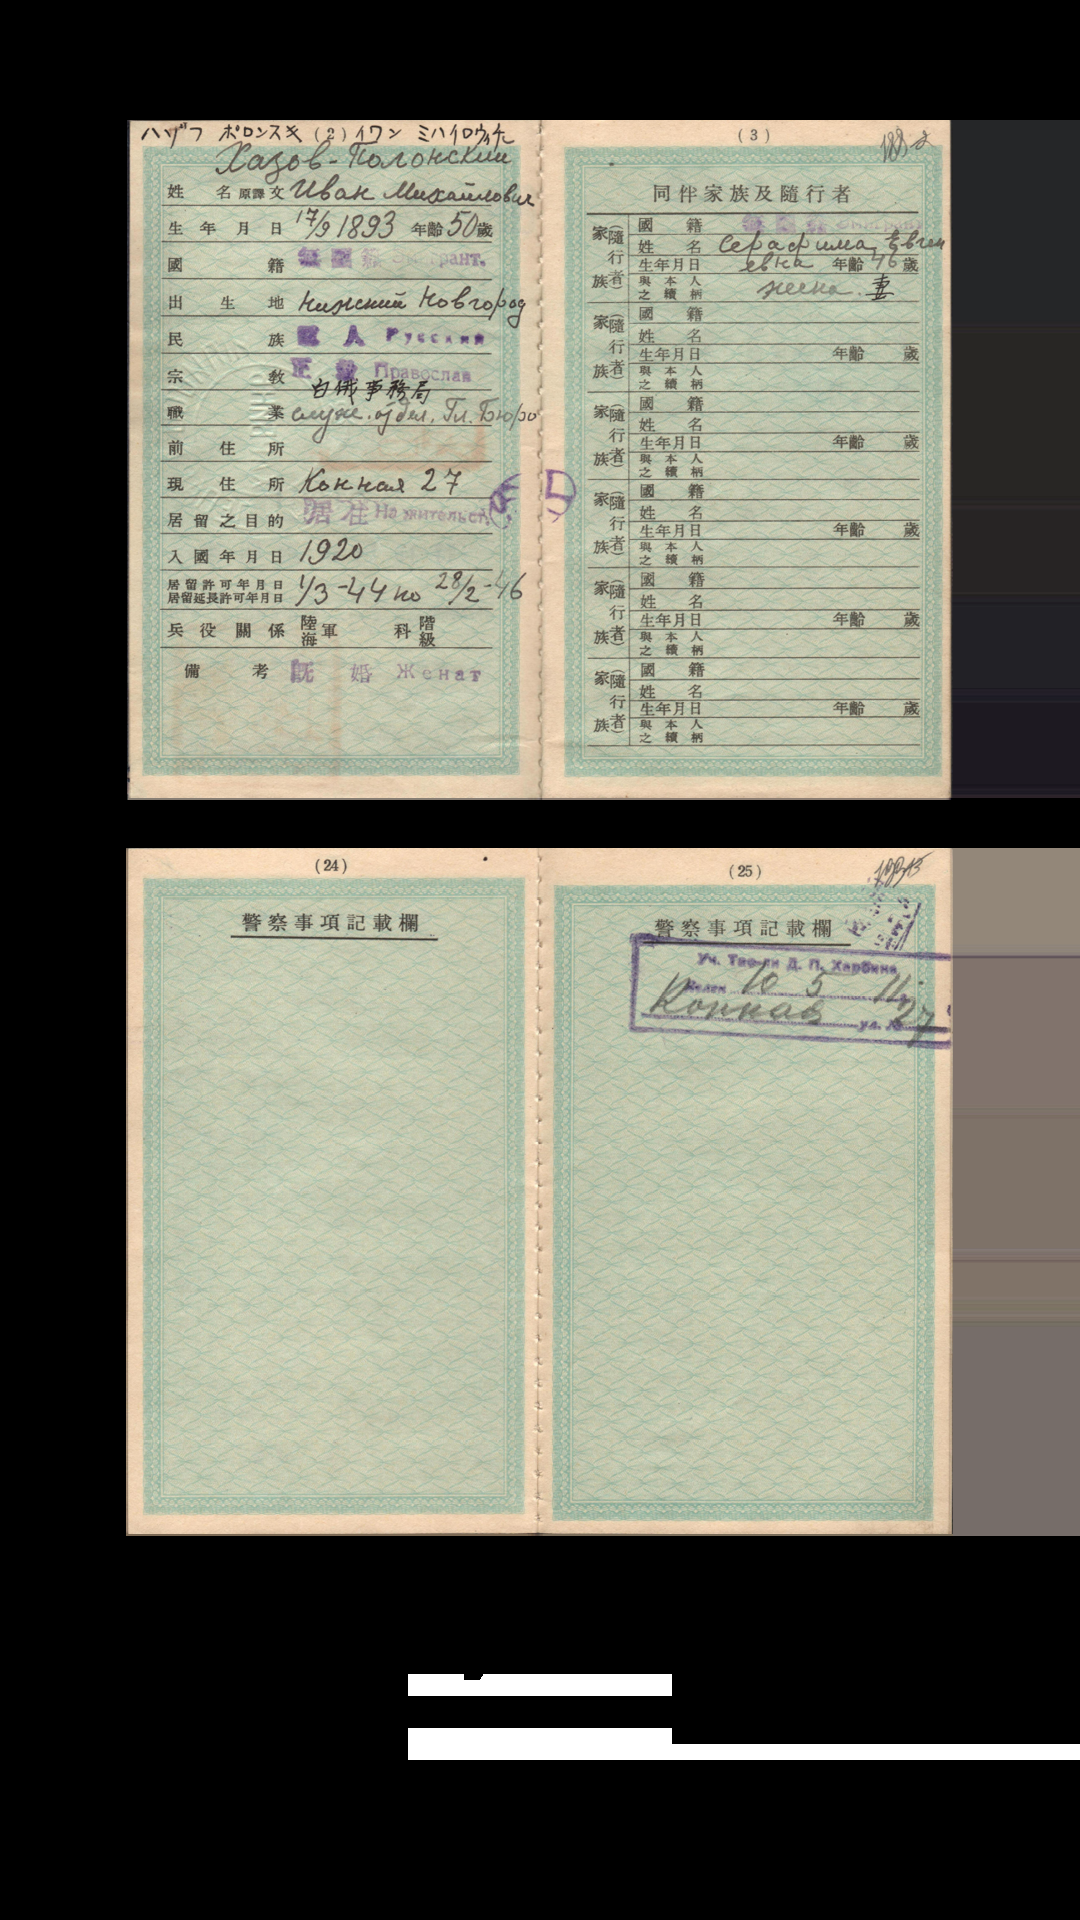 ハヅフ ポロンスキ (2) イワン ミハイロウィチ
Хазов-Полонский
姓 名 原譯文 Иван Михайлович
生年月日 17/9 1893 年齡 50 歲
國籍 無國籍 Эмигрант.
出生地 Нижний Новгород
民族 人 Русский
宗教 正教 Православ
白俄事務局
職業 служ. отдел. Гл. Бюро
前住所
現住所 Конная 27
居留之目的 居住 На жительст.
入國年月日 1920
居留許可年月日
居留延長許可年月日 1/3 -44 по 28/2 -46
兵役關係 陸海軍 科 階級
備考 既婚 Женат
(3)
同伴家族及隨行者
家族(隨行者)
國籍 無國籍 Эмигрант
姓名 Серафима Евген
生年月日 евна 年齡 46 歲
與本人之續柄 жена. 妻
家族(隨行者)
國籍
姓名
生年月日 年齡 歲
與本人之續柄
家族(隨行者)
國籍
姓名
生年月日 年齡 歲
與本人之續柄
家族(隨行者)
國籍
姓名
生年月日 年齡 歲
與本人之續柄
家族(隨行者)
國籍
姓名
生年月日 年齡 歲
與本人之續柄
家族(隨行者)
國籍
姓名
生年月日 年齡 歲
與本人之續柄
(24)
警察事項記載欄
(25)
警察事項記載欄
Уч. Д. П. Харбина
10 5 11
Конная ул. № 27